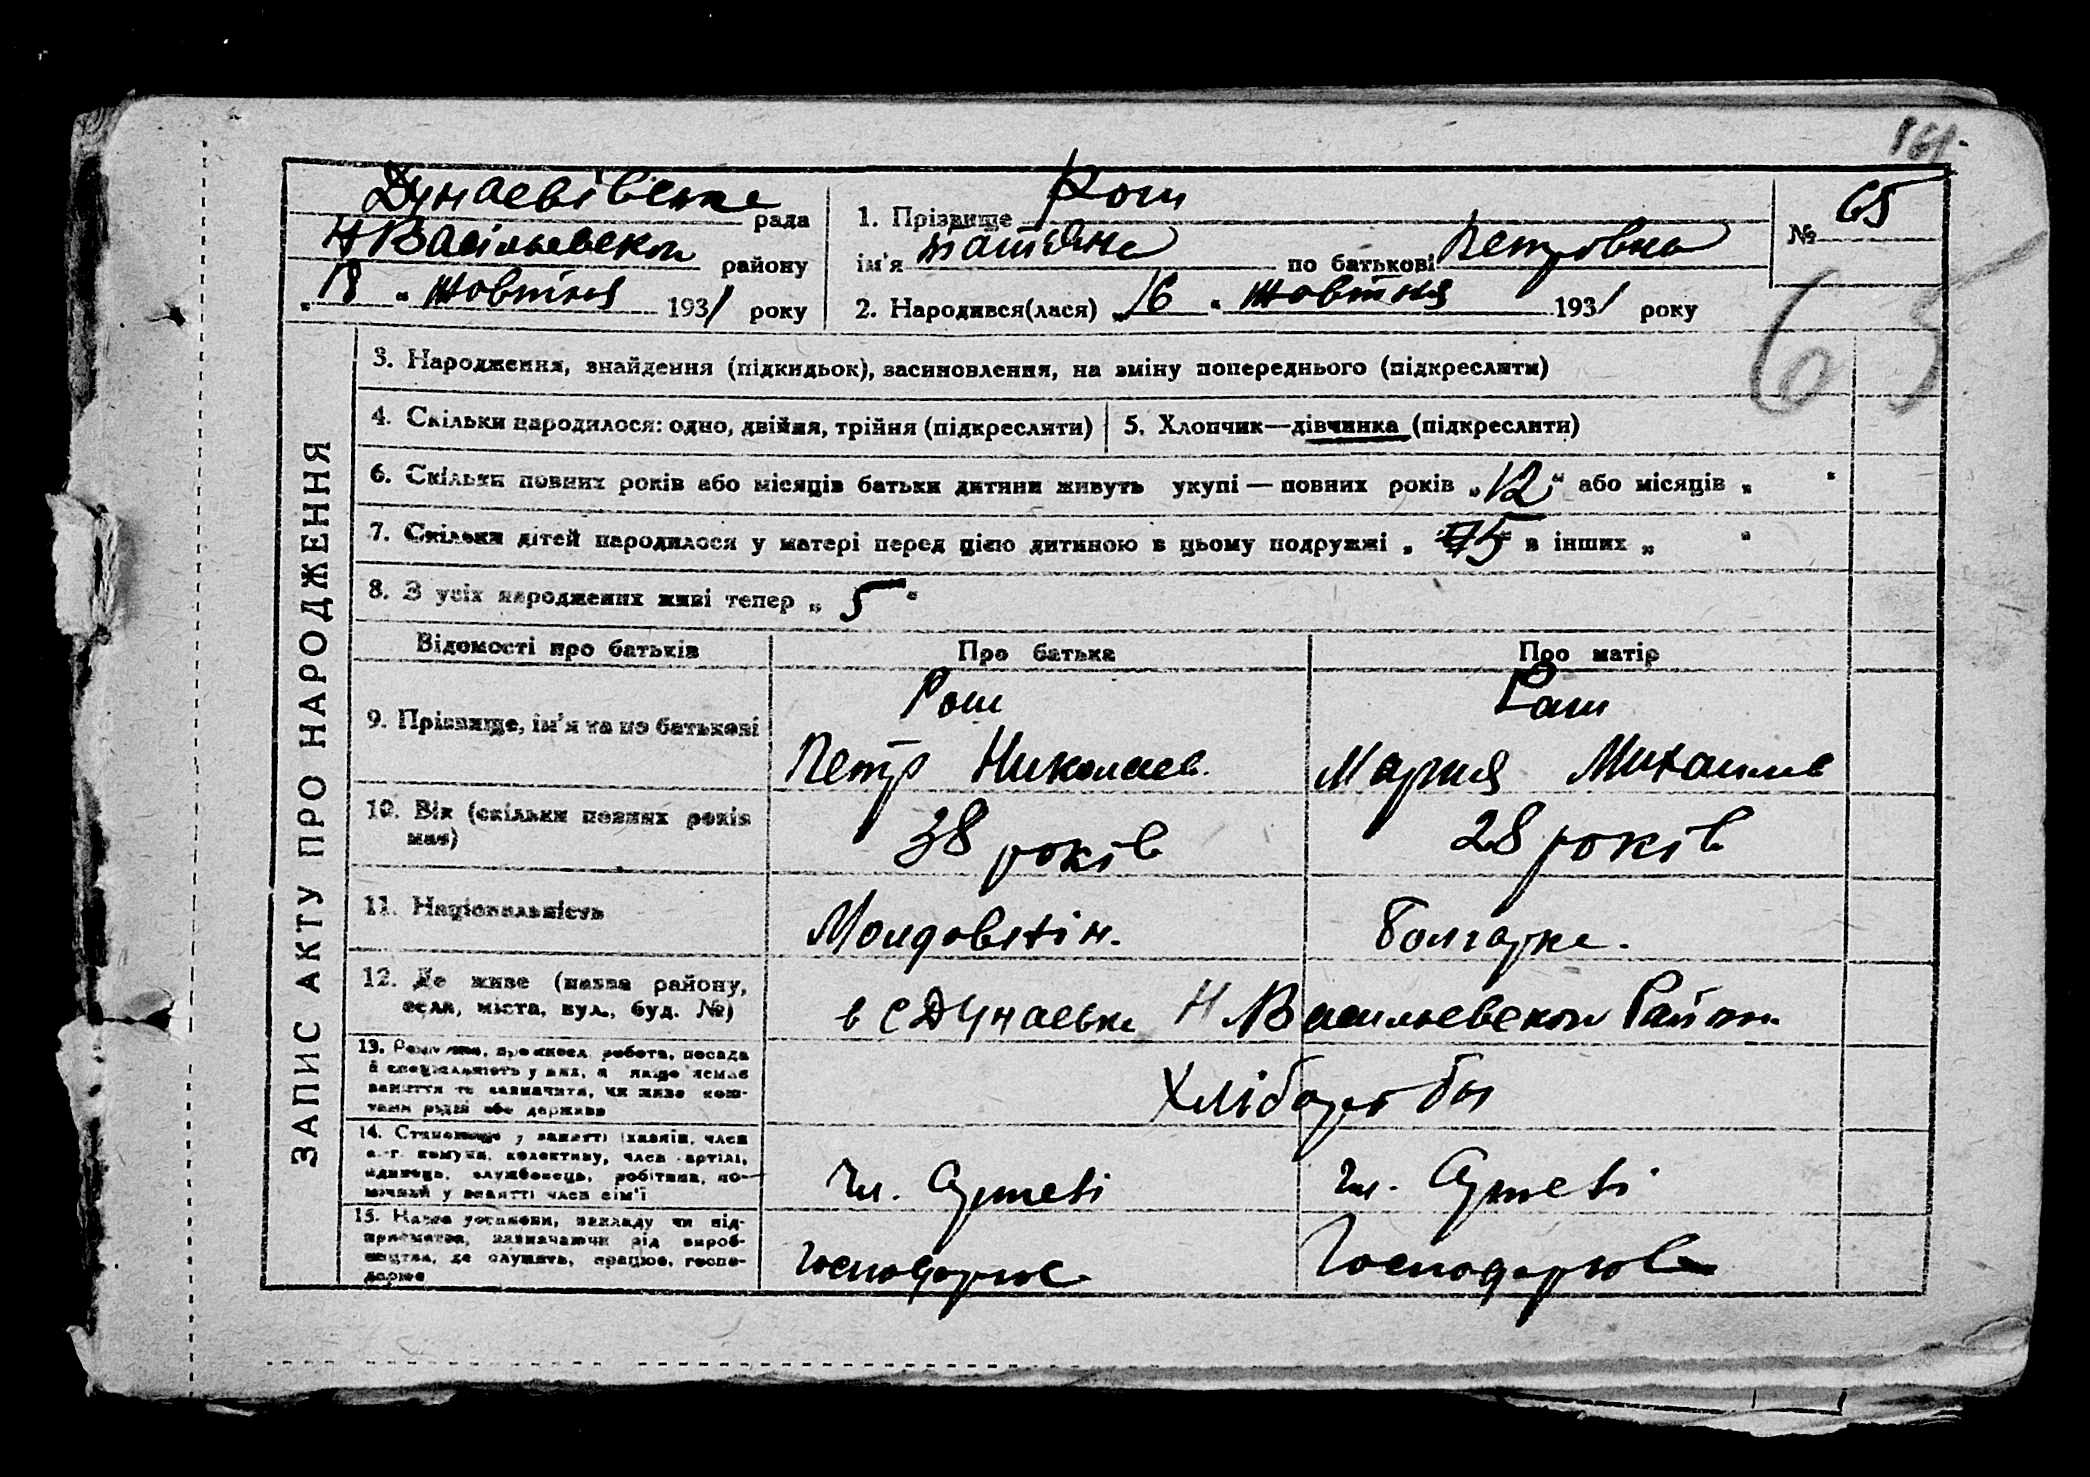 161.
Дунаевівська рада
Н Васильевском району
"18" жовтня 1931 року
1. Прізвище Рош
ім'я татяна по батькові Петровна
2. Народився(лася) "16" жовтня 1931 року
№ 65
65
ЗАПИС АКТУ ПРО НАРОДЖЕННЯ
3. Народження, знайдення (підкидьок), засиновлення, на зміну попереднього (підкреслити)
4. Скільки народилося: одно, двійня, трійня (підкреслити)
5. Хлопчик—дівчинка (підкреслити)
6. Скільки повних років або місяців батьки дитини живуть укупі — повних років „12“ або місяців „ “
7. Скільки дітей народилося у матері перед цією дитиною в цьому подружжі „ 5 в інших „ “
8. З усіх народжених живі тепер „ 5 “
Відомості про батьків Про батька Про матір
9. Прізвище, ім'я та по батькові
Рош
Петр Николаев.
Рош
Мария Михаилов
10. Вік (скільки повних років має)
38 років
28 років
11. Національність
Молдовнін.
Болгарка.
12. Де живе (назва району, села, міста, вул., буд. №)
в с Дунаевке Н Васильевском Район.
13. Ремество, промисел, робота, посада й спеціяльність у них, а якщо немає заняття то зазначити, чи живе коштами рідні або держави
Хлібороби
14. Становище у занятті (хазяїн, член с.-г. комуни, колективу, член артілі, одинець, службовець, робітник, помічний у занятті член сім'ї
Чл. Артеві
Чл. Артеві
15. Назва установи, закладу чи підприємства, зазначаючи рід виробництва, де служить, працює, господарює
господарює
Господарює